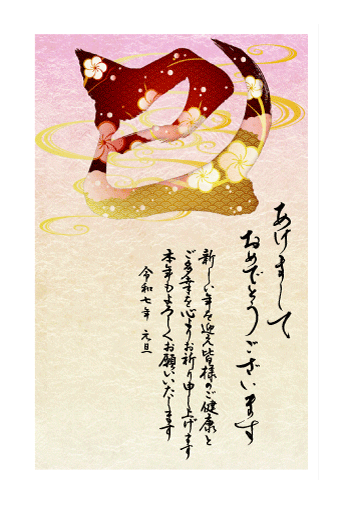 巳
あけまして
おめでとうございます
新しい年を迎え皆様のご健康と
ご多幸を心よりお祈り申し上げます
本年もよろしくお願いいたします
令和七年 元旦